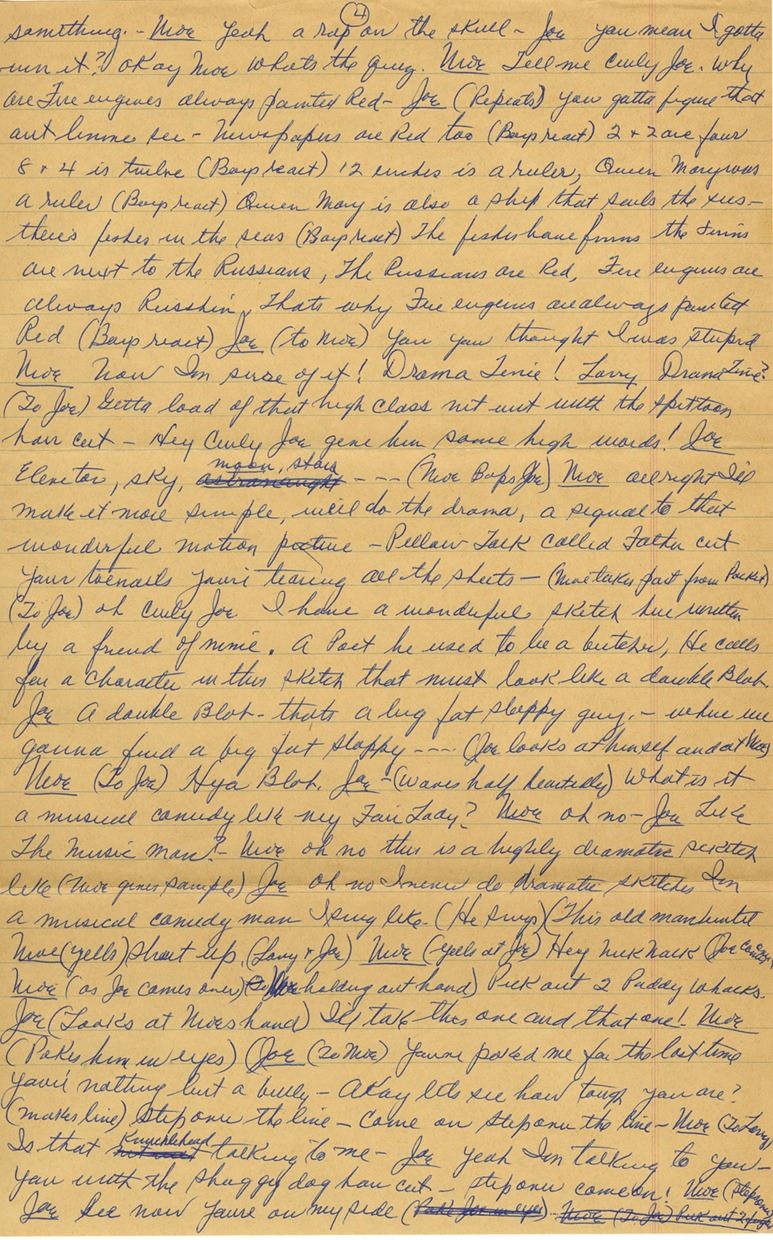 (2)
something. - Moe Yeah a rap on the skull - Joe you mean I gotta
earn it? Okay Moe whats the quiz. Moe Tell me curly Joe. Why
are Fire engines always painted Red - Joe (Repeats) you gotta figure that
out lemme see - Newspapers are Red too (Boys react) 2 + 2 are four
8 + 4 is twelve (Boys react) 12 inches is a ruler, Queen Mary was
a ruler (Boys react) Queen Mary is also a ship that sails the seas -
there's fishes in the seas (Boys react) The fishes have finns the Finns
are next to the Russians, The Russians are Red, Fire engines are
always Russhin, Thats why Fire engines are always painted
Red (Boys react) Joe (to Moe) You you thought I was stupid
Moe Now Im sure of it! Drama Time! Larry Drama Time?
(To Joe) Getta load of that high class nit wit with the spittoon
hair cut - Hey Curly Joe give him some high words! Joe
Elevator, sky, moon, stars --- (Moe Bops Joe) Moe allright I'll
make it more simple, we'll do the drama, a sequal to that
wonderful motion picture - Pillow Talk called Father cut
your toenails you're tearing all the sheets - (Moe takes part from Pocket)
(To Joe) oh curly Joe I have a wonderful sketch here written
by a friend of mine. A Poet he used to be a butcher, He calls
for a character in this sketch that must look like a double Blob.
Joe A double Blob - thats a big fat sloppy guy. - where we
gonna find a big fat sloppy ---- (Joe looks at himself and at Moe)
Moe (To Joe) Hya Blob. Joe - (waves half heartedly) What is it
a musical comedy like my Fair Lady? Moe oh no - Joe Like
The Music man? - Moe oh no this is a highly dramatic sketch
like (Moe gives sample) Joe oh no I never do dramatic sketches Im
a musical comedy man I sing like. (He sings) (This old man
Moe (yells) Shout up. (Larry & Joe) Moe (yells at Joe) Hey nick nack (Joe comes over)
Moe (as Joe comes over) holding out hand) Pick out 2 Paddy whacks.
Joe (Looks at Moes hand) I'll take this one and that one! Moe
(Pokes him in eyes) (Joe (to Moe) You've poked me for the last time
you're nothing but a bully - Okay lets see how tough you are?
(makes line) Step over the line - Come on step over the line - Moe (To Larry)
Is that Knucklehead talking to me - Joe yeah Im talking to you -
you with the shaggy dog hair cut - step over come on! Moe (steps over)
Joe See now you're on my side (Poke Joe in eyes) Moe (To Joe) Pick out 2